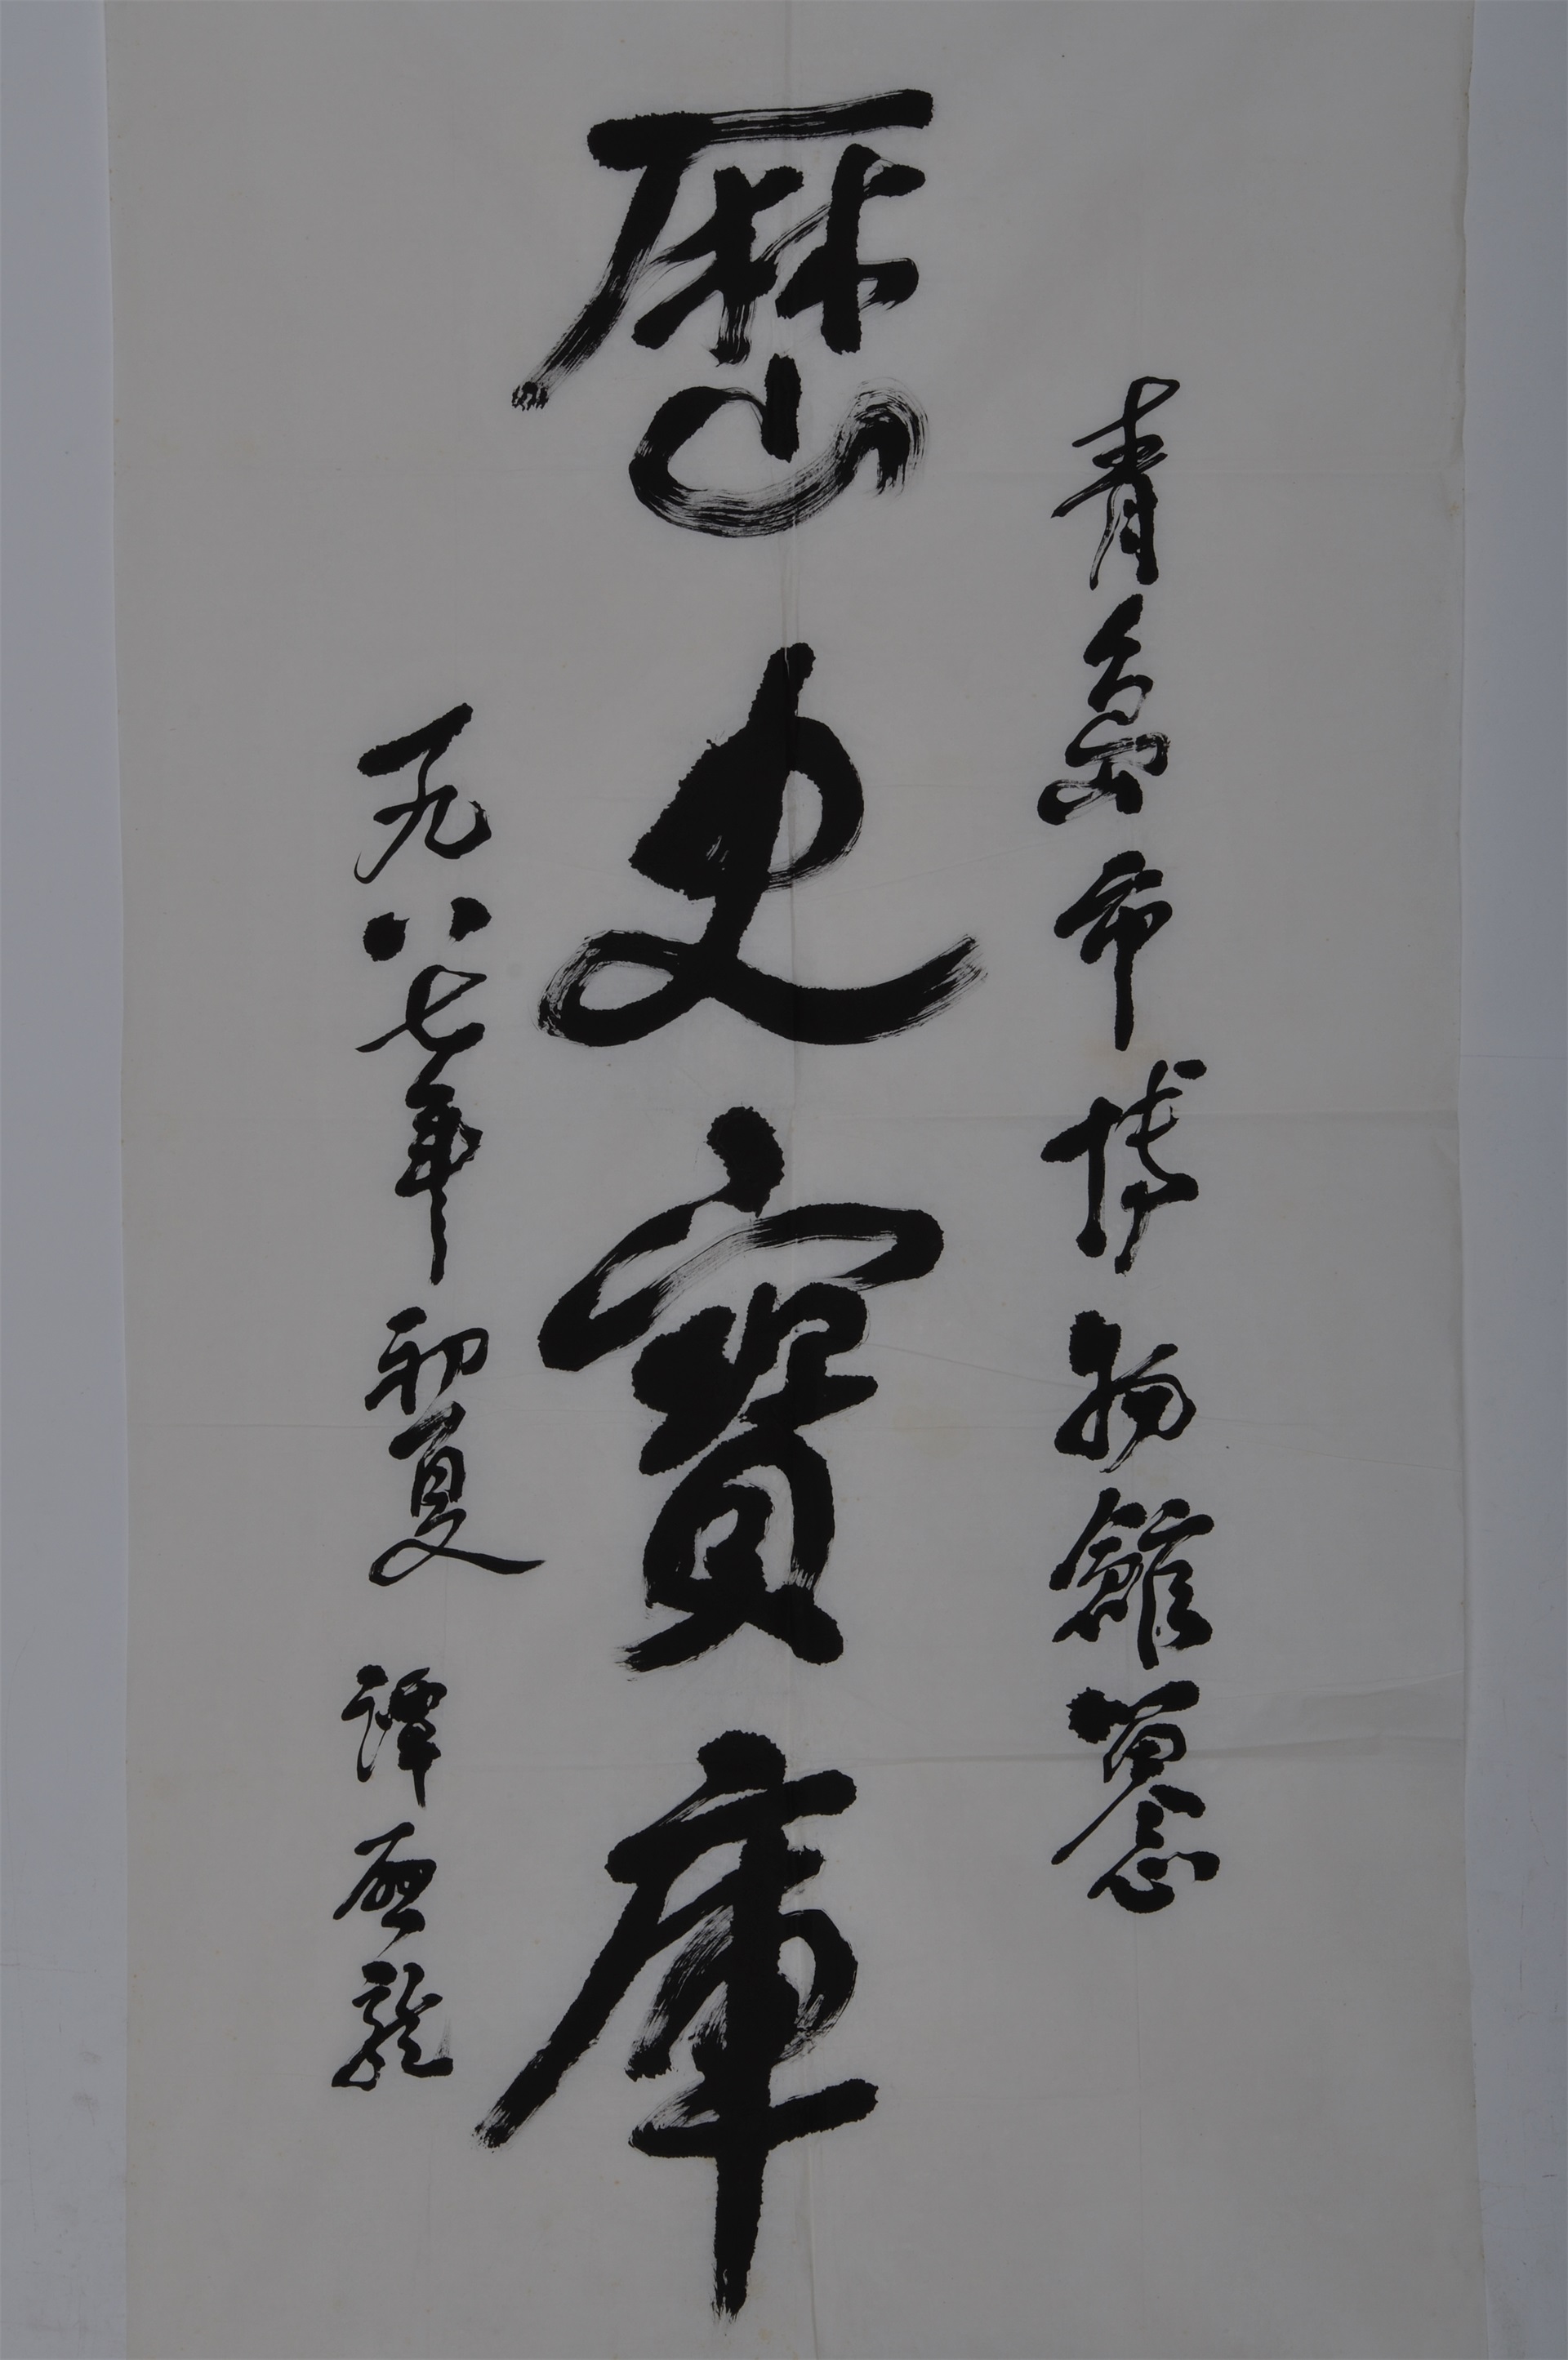 青島市博物館留念
歷史寶庫
一九八七年初夏 譚啟龍